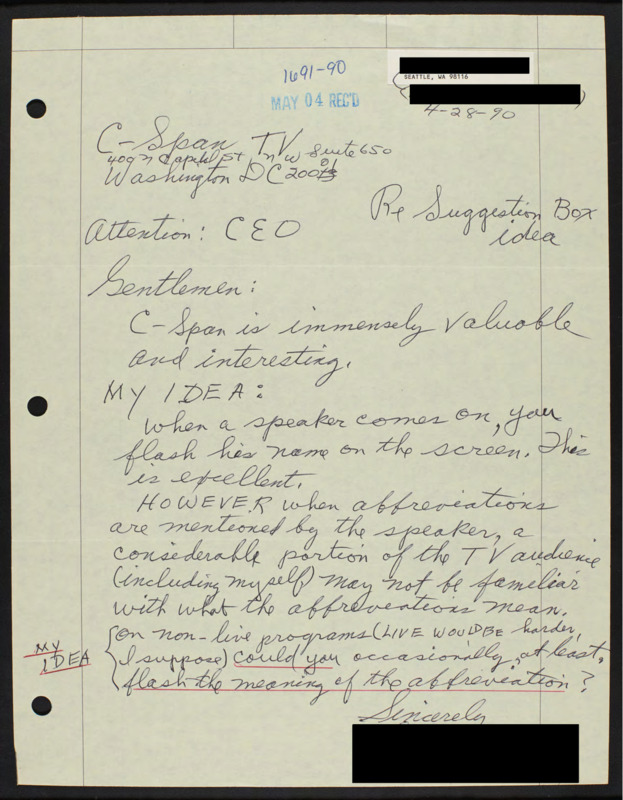 1691-90
MAY 04 REC'D
SEATTLE, WA 98116
4-28-90
C-Span TV
409 N Capitol St, NW Suite 650
Washington DC 200
Re Suggestion Box
idea
Attention: CEO
Gentlemen:
C-Span is immensely valuable
and interesting.
MY IDEA:
When a speaker comes on, you
flash his name on the screen. This
is excellent.
HOWEVER when abbreviations
are mentioned by the speaker, a
considerable portion of the TV audience
(including myself) may not be familiar
with what the abbreviations mean.
On non-live programs (LIVE WOULD BE harder,
I suppose) could you occasionally, at least,
flash the meaning of the abbreviation?
MY
IDEA
Sincerely